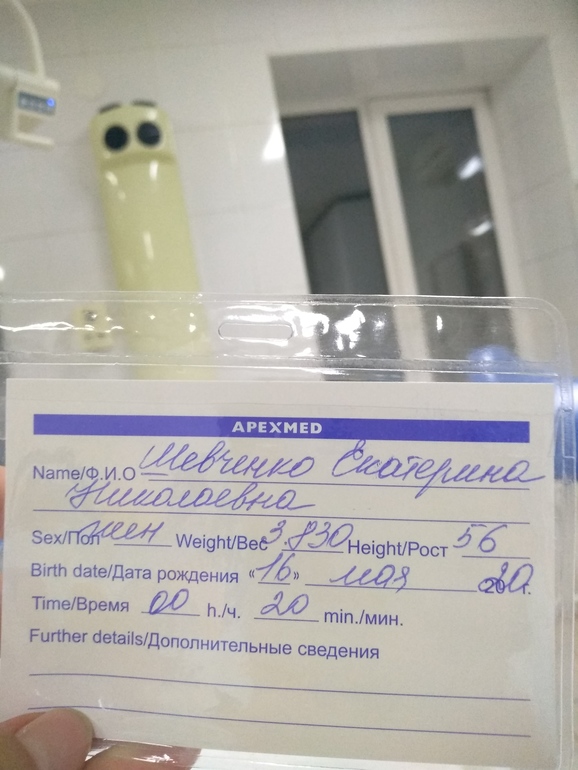 APEXMED
Name/Ф.И.О Шевченко Екатерина
Николаевна
Sex/Пол жен Weight/Вес 3.830 Height/Рост 56
Birth date/Дата рождения «16» мая 2020 г.
Time/Время 00 h./ч. 20 min./мин.
Further details/Дополнительные сведения